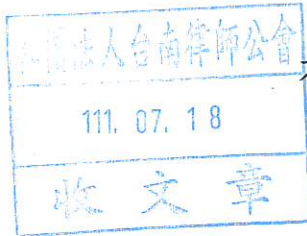 社團法人台南律師公會
111. 07. 18
收文章